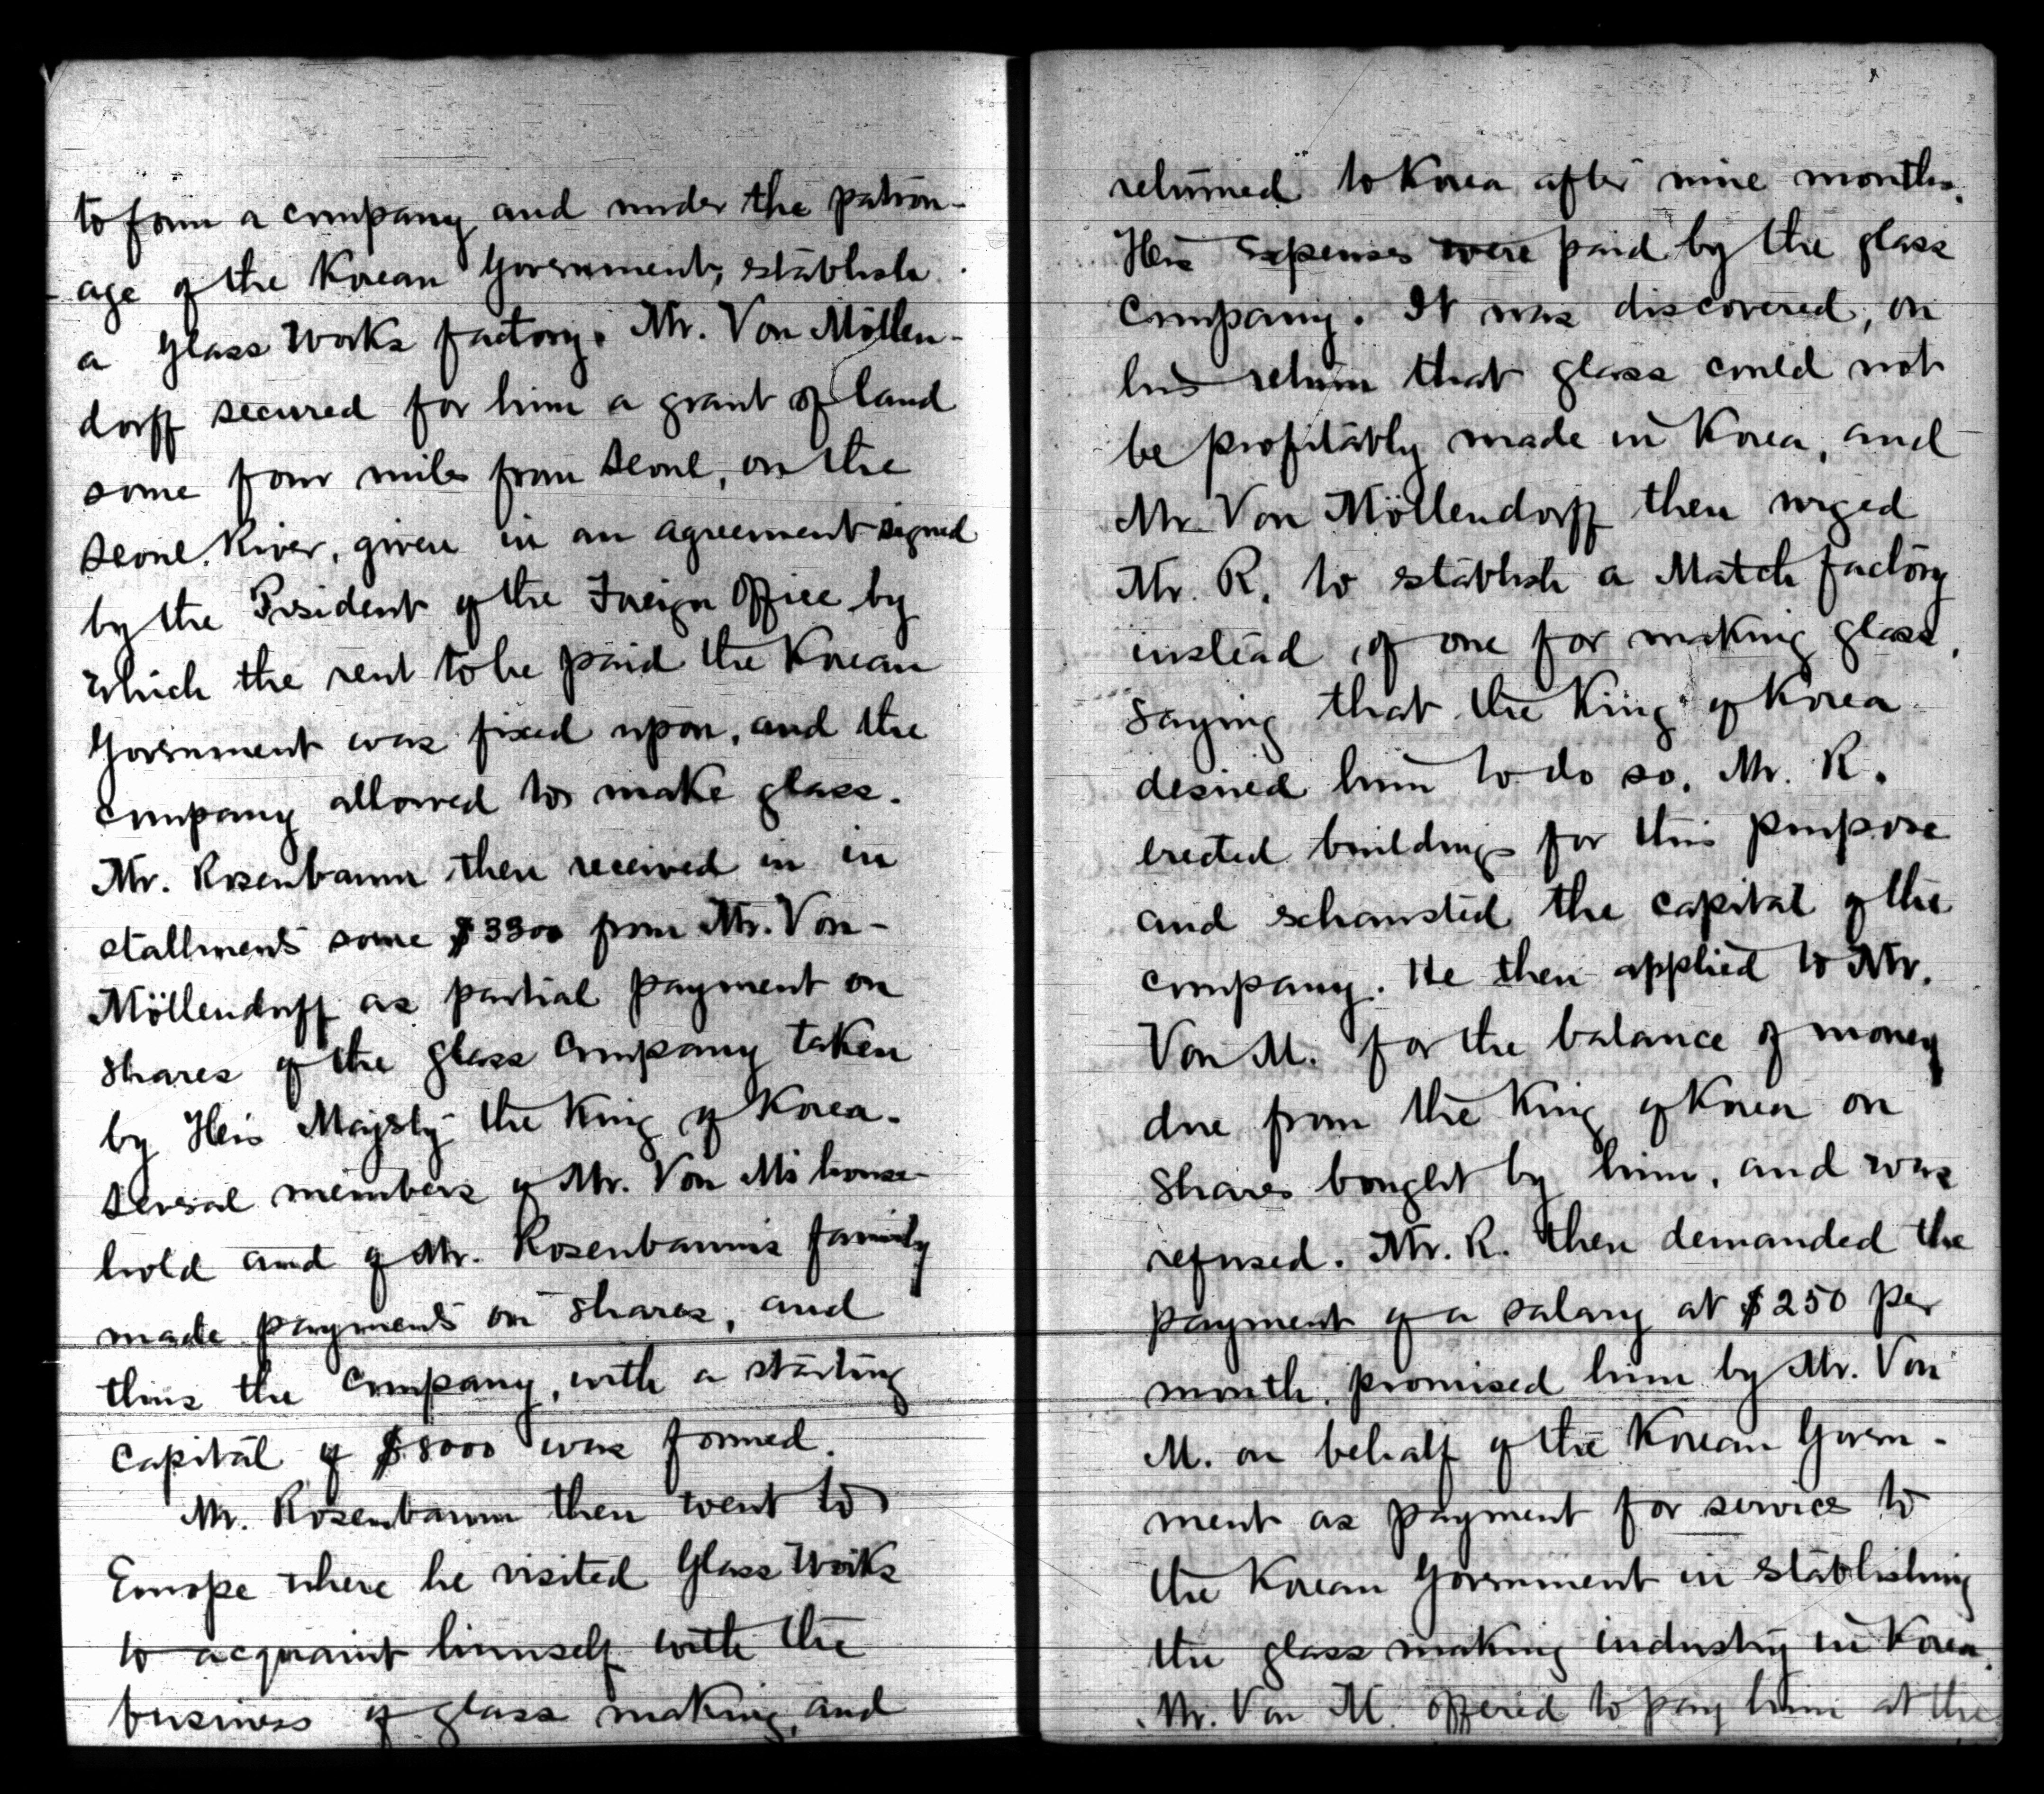 to form a company and under the patron-
age of the Korean Government, establish
a Glass Works factory. Mr. Von Möllen-
dorff secured for him a grant of land
some four miles from Seoul, on the
Seoul River, given in an agreement signed
by the President of the Foreign Office by
which the rent to be paid the Korean
Government was fixed upon, and the
company allowed to make glass.
Mr. Rosenbaum then received in in
stallments some $3300 from Mr. Von-
Möllendorff as partial payment on
shares of the glass company taken
by His Majesty the King of Korea.
Several members of Mr. Von M's house-
hold and of Mr. Rosenbaum's family
made payments on shares, and
thus the Company, with a starting
capital of $8000 was formed.
Mr. Rosenbaum then went to
Europe where he visited Glass Works
to acquaint himself with the
business of glass making, and
returned to Korea after nine months.
His expenses were paid by the glass
company. It was discovered, on
his return that glass could not
be profitably made in Korea, and
Mr. Von Möllendorff then urged
Mr. R. to establish a Match factory
instead of one for making glass,
saying that the King of Korea
desired him to do so. Mr. R.
erected buildings for this purpose
and exhausted the capital of the
company. He then applied to Mr.
Von M. for the balance of money
due from the King of Korea on
shares bought by him, and was
refused. Mr. R. then demanded the
payment of a salary at $250 per
month promised him by Mr. Von
M. on behalf of the Korean Govern-
ment as payment for service to
the Korean Government in establishing
the glass making industry in Korea.
Mr. Von M. offered to pay him at the